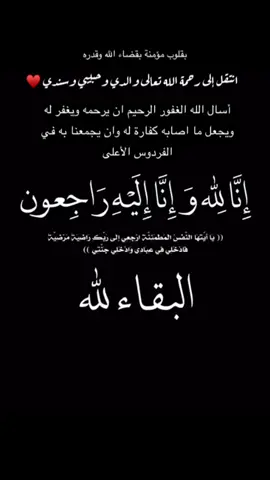 بقلوب مؤمنة بقضاء الله وقدره
انتقل إلى رحمة الله تعالى والدي وحبيبي وسندي ❤️
أسال الله الغفور الرحيم ان يرحمه ويغفر له
ويجعل ما اصابه كفارة له وان يجمعنا به في
الفردوس الأعلى
إِنَّا لِلّهِ وَإِنَّا إِلَيْهِ رَاجِعون
(( يَا أَيَّتُهَا النَّفْسُ المُطْمَئِنَّةُ ارْجِعِي إِلَى رَبِّكِ رَاضِيَةً مَرْضِيَّةً
فَادْخُلِي فِي عِبَادِي وَادْخُلِي جَنَّتِي ))
البقاء لله